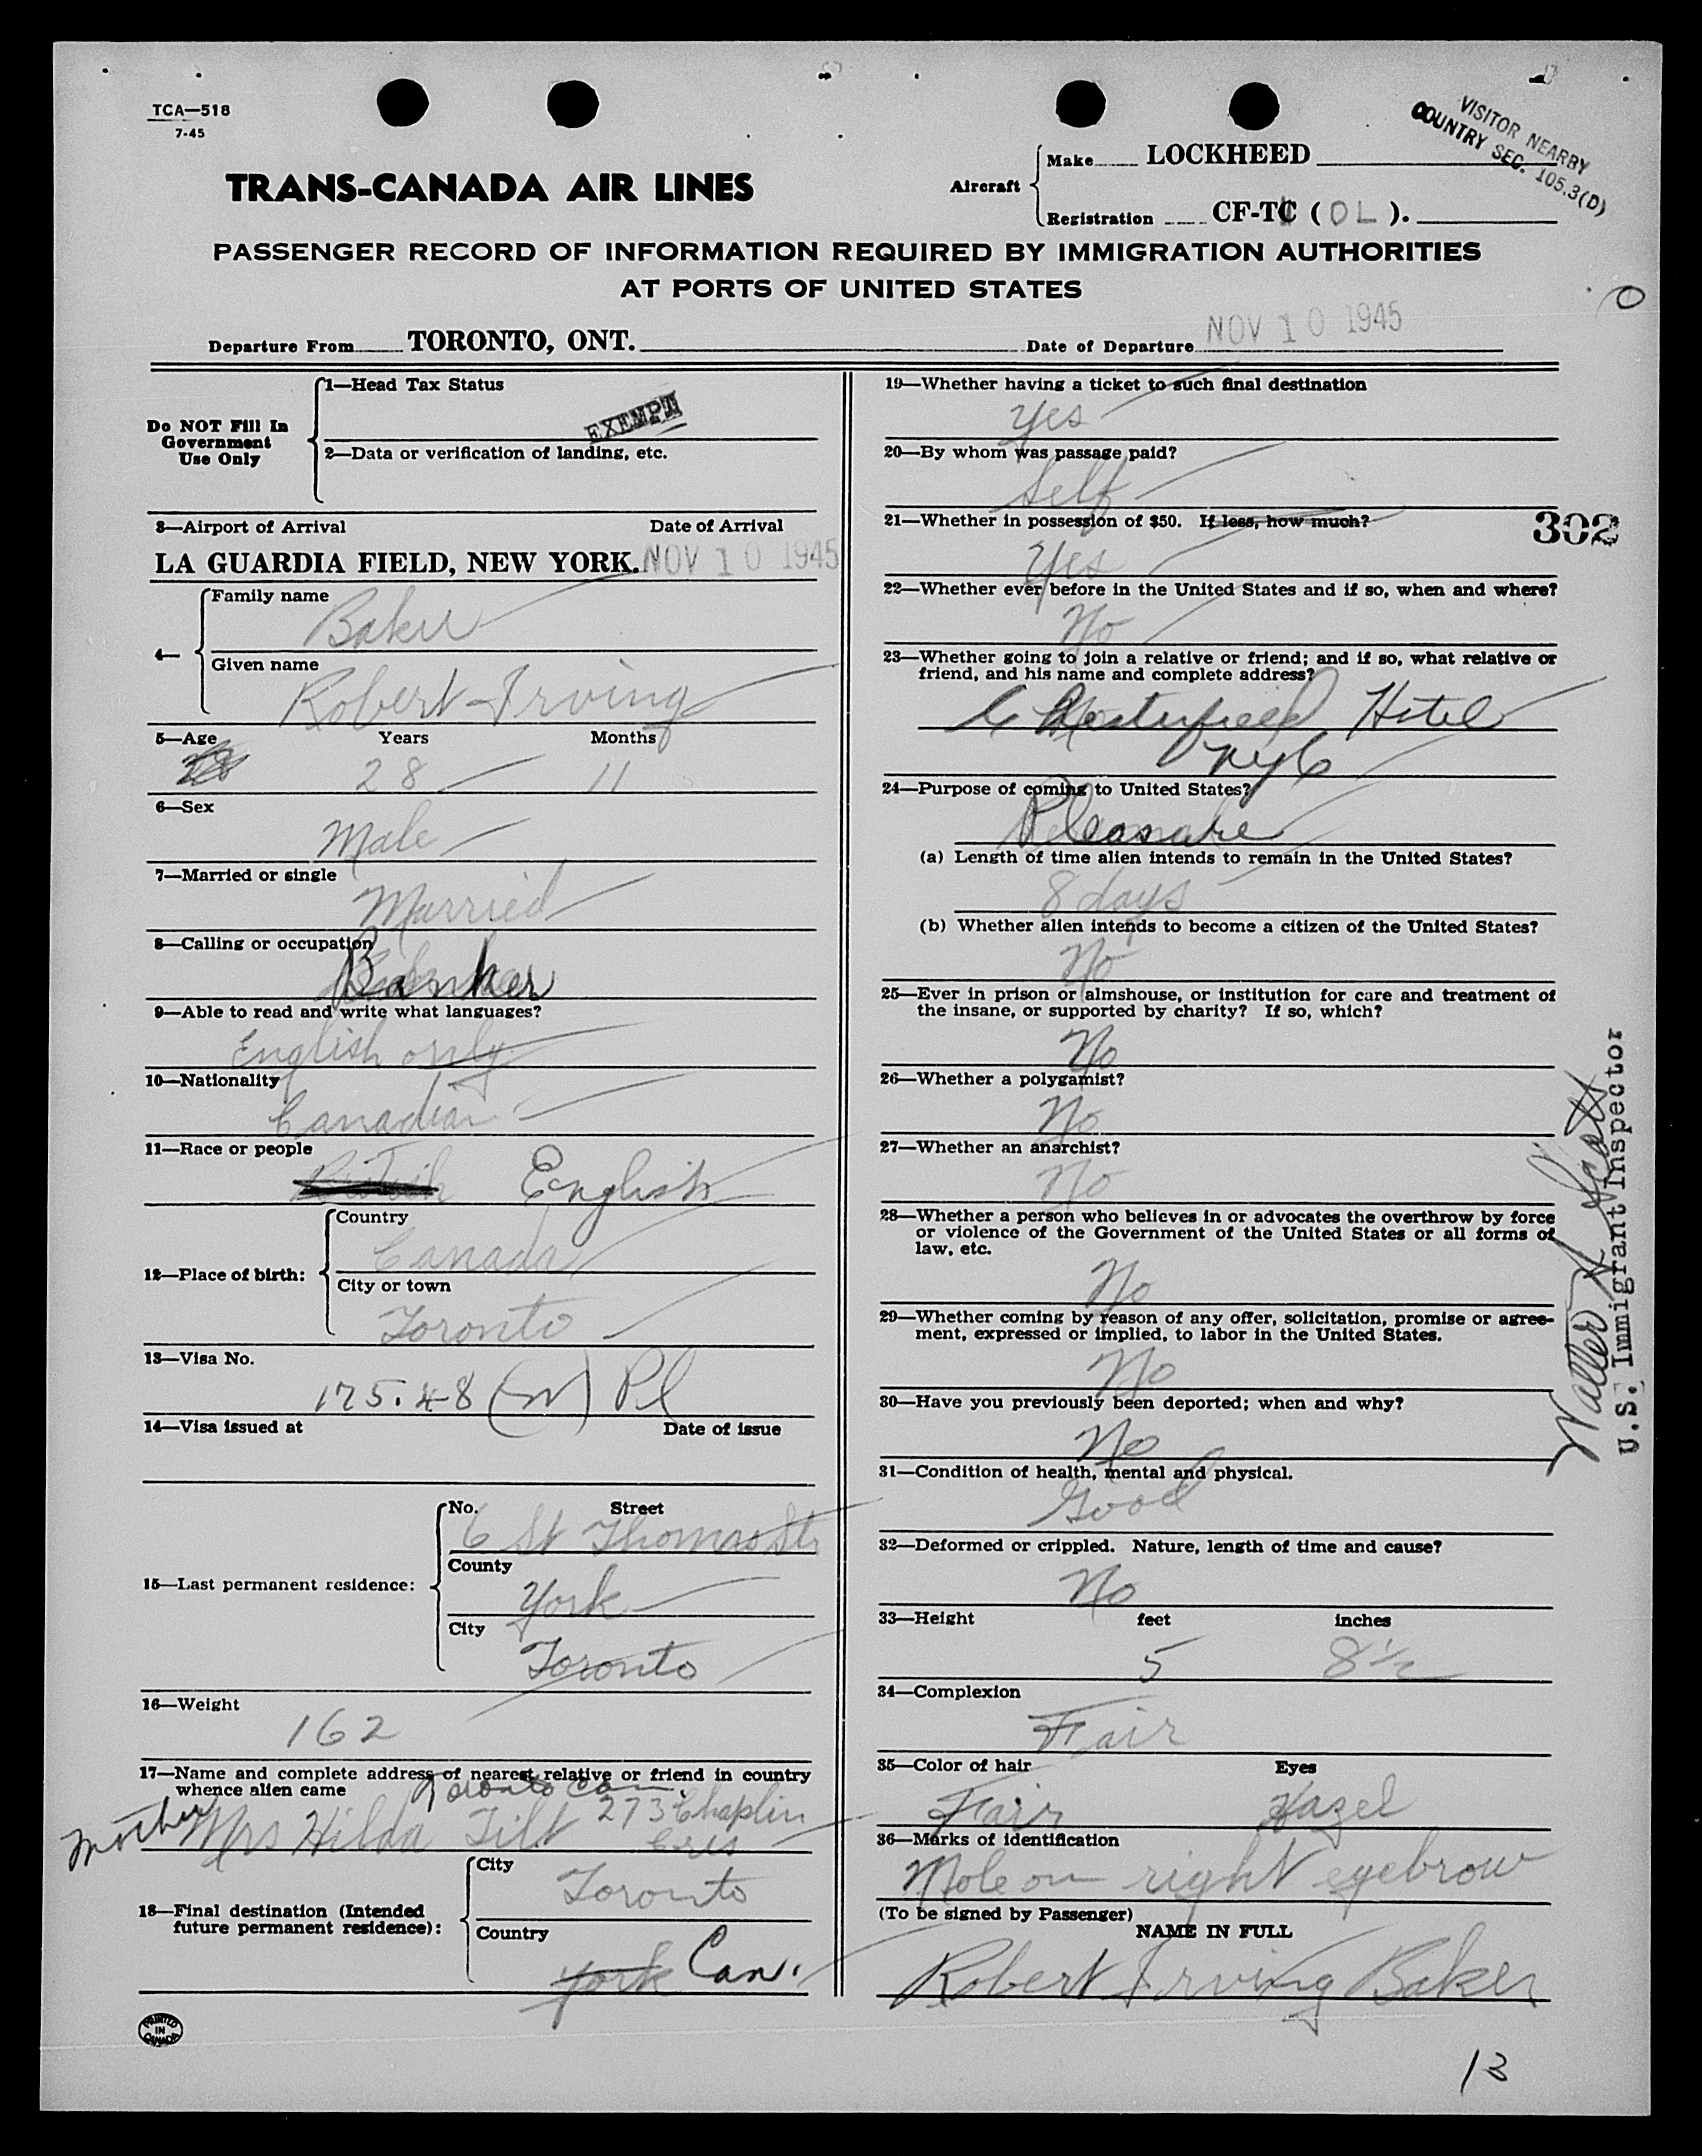 TCA—518
7-45
VISITOR NEARBY
COUNTRY SEC. 105.3(D)
TRANS-CANADA AIR LINES
Aircraft
Make LOCKHEED
Registration CF-TC ( OL ).
PASSENGER RECORD OF INFORMATION REQUIRED BY IMMIGRATION AUTHORITIES
AT PORTS OF UNITED STATES
Departure From TORONTO, ONT. Date of Departure NOV 10 1945
Do NOT Fill In
Government
Use Only
1—Head Tax Status
EXEMPT
2—Data or verification of landing, etc.
3—Airport of Arrival Date of Arrival
LA GUARDIA FIELD, NEW YORK. NOV 10 1945
4—
Family name
Baker
Given name
Robert Irving
5—Age Years Months
28 28 11
6—Sex
Male
7—Married or single
Married
8—Calling or occupation
Banker
9—Able to read and write what languages?
English only
10—Nationality
Canadian
11—Race or people
British English
12—Place of birth:
Country
Canada
City or town
Toronto
13—Visa No.
175.48 (w) Pl
14—Visa issued at Date of issue
15—Last permanent residence:
No. Street
6 St Thomas St
County
York
City
Toronto
16—Weight
162
17—Name and complete address of nearest relative or friend in country
whence alien came Toronto Can.
Mother Mrs Hilda Tilt 273 Chaplin
Cres
18—Final destination (Intended
future permanent residence):
City
Toronto
Country
York Can.
PRINTED
IN
CANADA
19—Whether having a ticket to such final destination
Yes
20—By whom was passage paid?
Self
21—Whether in possession of $50. If less, how much?
Yes
302
22—Whether ever before in the United States and if so, when and where?
No
23—Whether going to join a relative or friend; and if so, what relative or
friend, and his name and complete address?
Chesterfield Hotel
NYC
24—Purpose of coming to United States?
Pleasure
(a) Length of time alien intends to remain in the United States?
8 days
(b) Whether alien intends to become a citizen of the United States?
No
25—Ever in prison or almshouse, or institution for care and treatment of
the insane, or supported by charity? If so, which?
No
26—Whether a polygamist?
No
27—Whether an anarchist?
No
28—Whether a person who believes in or advocates the overthrow by force
or violence of the Government of the United States or all forms of
law, etc.
No
29—Whether coming by reason of any offer, solicitation, promise or agree-
ment, expressed or implied, to labor in the United States.
No
30—Have you previously been deported; when and why?
No
31—Condition of health, mental and physical.
Good
32—Deformed or crippled. Nature, length of time and cause?
No
33—Height feet inches
5 8½
34—Complexion
Fair
35—Color of hair Eyes
Fair Hazel
36—Marks of identification
Mole on right eyebrow
(To be signed by Passenger)
NAME IN FULL
Robert Irving Baker
Walter
U.S. Immigrant Inspector
13